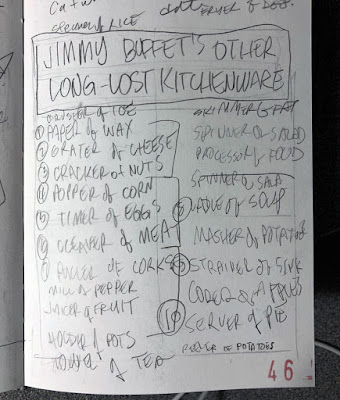 of RICE
JIMMY BUFFET'S OTHER
LONG-LOST KITCHENWARE
CRUSHER of ICE
1 PAPER of WAX
2 GRATER of CHEESE
3 CRACKER of NUTS
4 POPPER of CORN
5 TIMER of EGGS
6 CLEAVER of MEAT
7 PULLER OF CORKS
MILL of PEPPER
JUICER of FRUIT
HOLDER of POTS
of TEA
SKIMMER of FAT
SPINNER of SALAD
PROCESSOR of FOOD
SPINNER of SALA
8 LADLE of SOUP
MASHER of POTATOES
9 STRAINER of SINK
CORER of APPLES
10 SERVER of PIE
PEELER of POTATOES
46